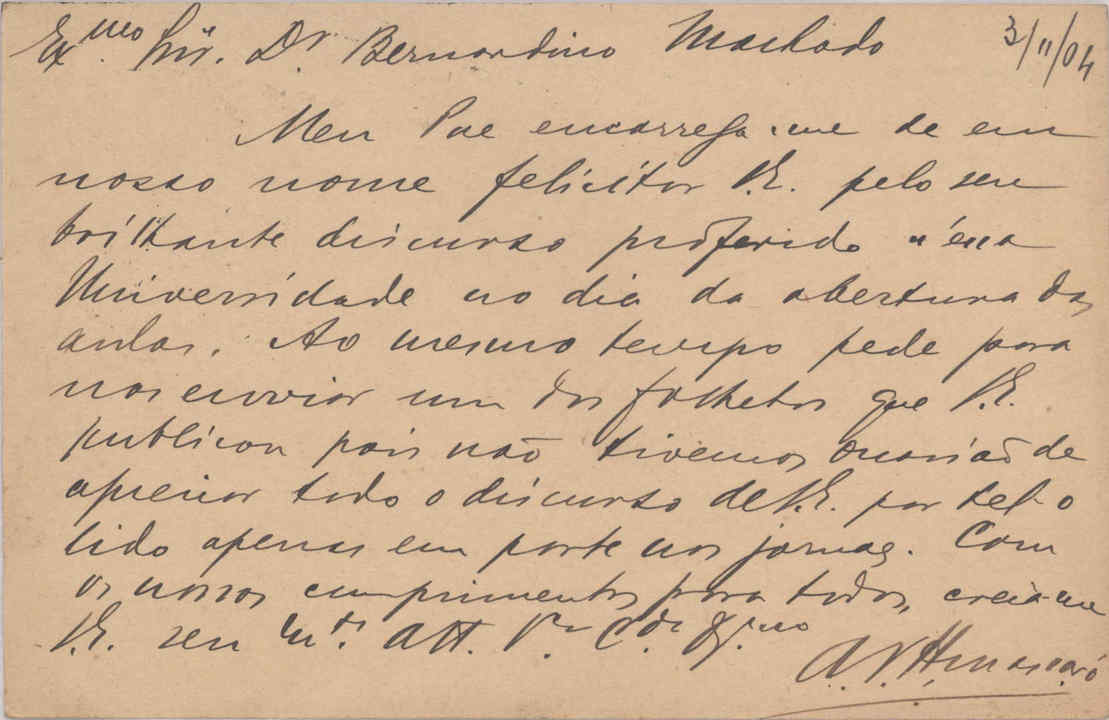 Ex.mo Snr. Dr. Bernardino Machado 3/11/04
Meu Pae encarrega-me de em
nosso nome felicitar V.E. pelo seu
brilhante discurso proferido n'essa
Universidade no dia da abertura das
aulas. Ao mesmo tempo pede para
nos enviar um dos folhetos que V.E.
publicou pois não tivemos occasião de
apreciar todo o discurso de V.E. por tel-o
lido apenas em parte nos jornaes. Com
os nossos cumprimentos para todos, creia-me
V.E. seu m.to att. V.or C.do